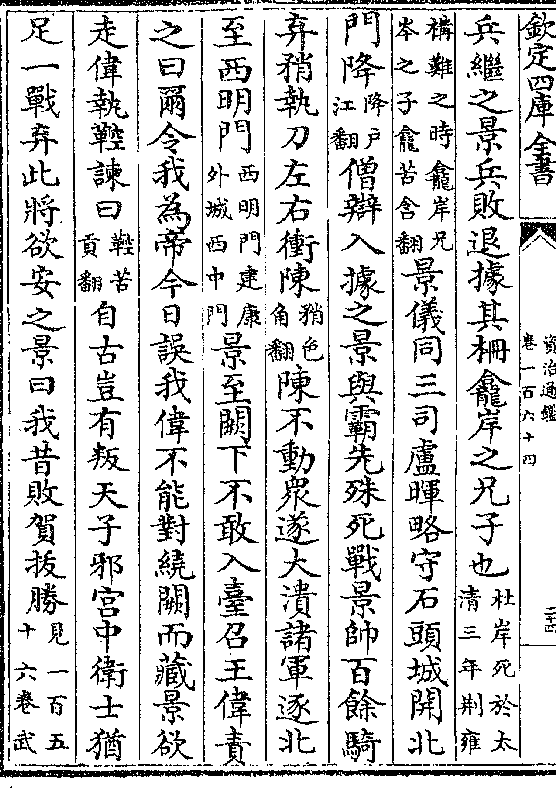 欽定四庫全書
資治通鑑
卷一百六十四
二十四
兵繼之景兵敗退據其柵龕岸之兄子也杜岸死於太清三年荆雍
構難之時龕岸兄岑之子龕苦含翻景儀同三司盧暉略守石頭城開北
門降降户江翻僧辯入據之景與霸先殊死戰景帥百餘騎
弃矟執刀左右衝陳矟色角翻陳不動衆遂大潰諸軍逐北
至西明門西明門建康外城西中門景至闕下不敢入臺召王偉責
之曰爾令我為帝今日誤我偉不能對繞闕而藏景欲
走偉執鞚諫曰鞚苦貢翻自古豈有叛天子邪宫中衛士猶
足一戰弃此將欲安之景曰我昔敗賀拔勝見一百五十六卷武